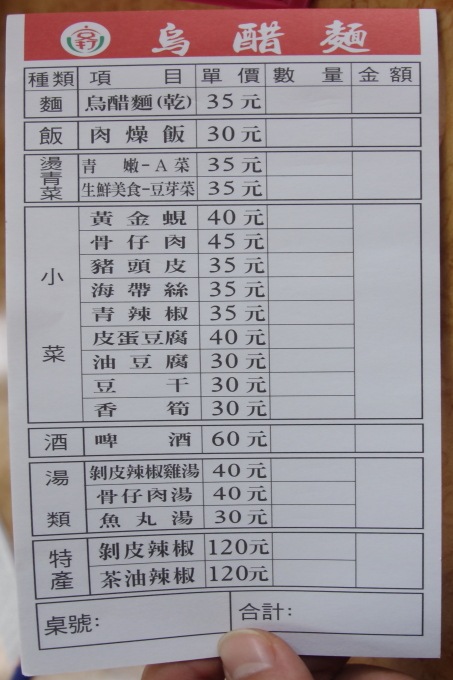 烏醋麵
種類 項目 單價 數量 金額
麵 烏醋麵(乾) 35元
飯 肉燥飯 30元
燙青菜 青嫩-A菜 35元
生鮮美食-豆芽菜 35元
小菜 黃金蜆 40元
骨仔肉 45元
豬頭皮 35元
海帶絲 35元
青辣椒 35元
皮蛋豆腐 40元
油豆腐 30元
豆干 30元
香筍 30元
酒 啤酒 60元
湯類 剝皮辣椒雞湯 40元
骨仔肉湯 40元
魚丸湯 30元
特產 剝皮辣椒 120元
茶油辣椒 120元
桌號: 合計: